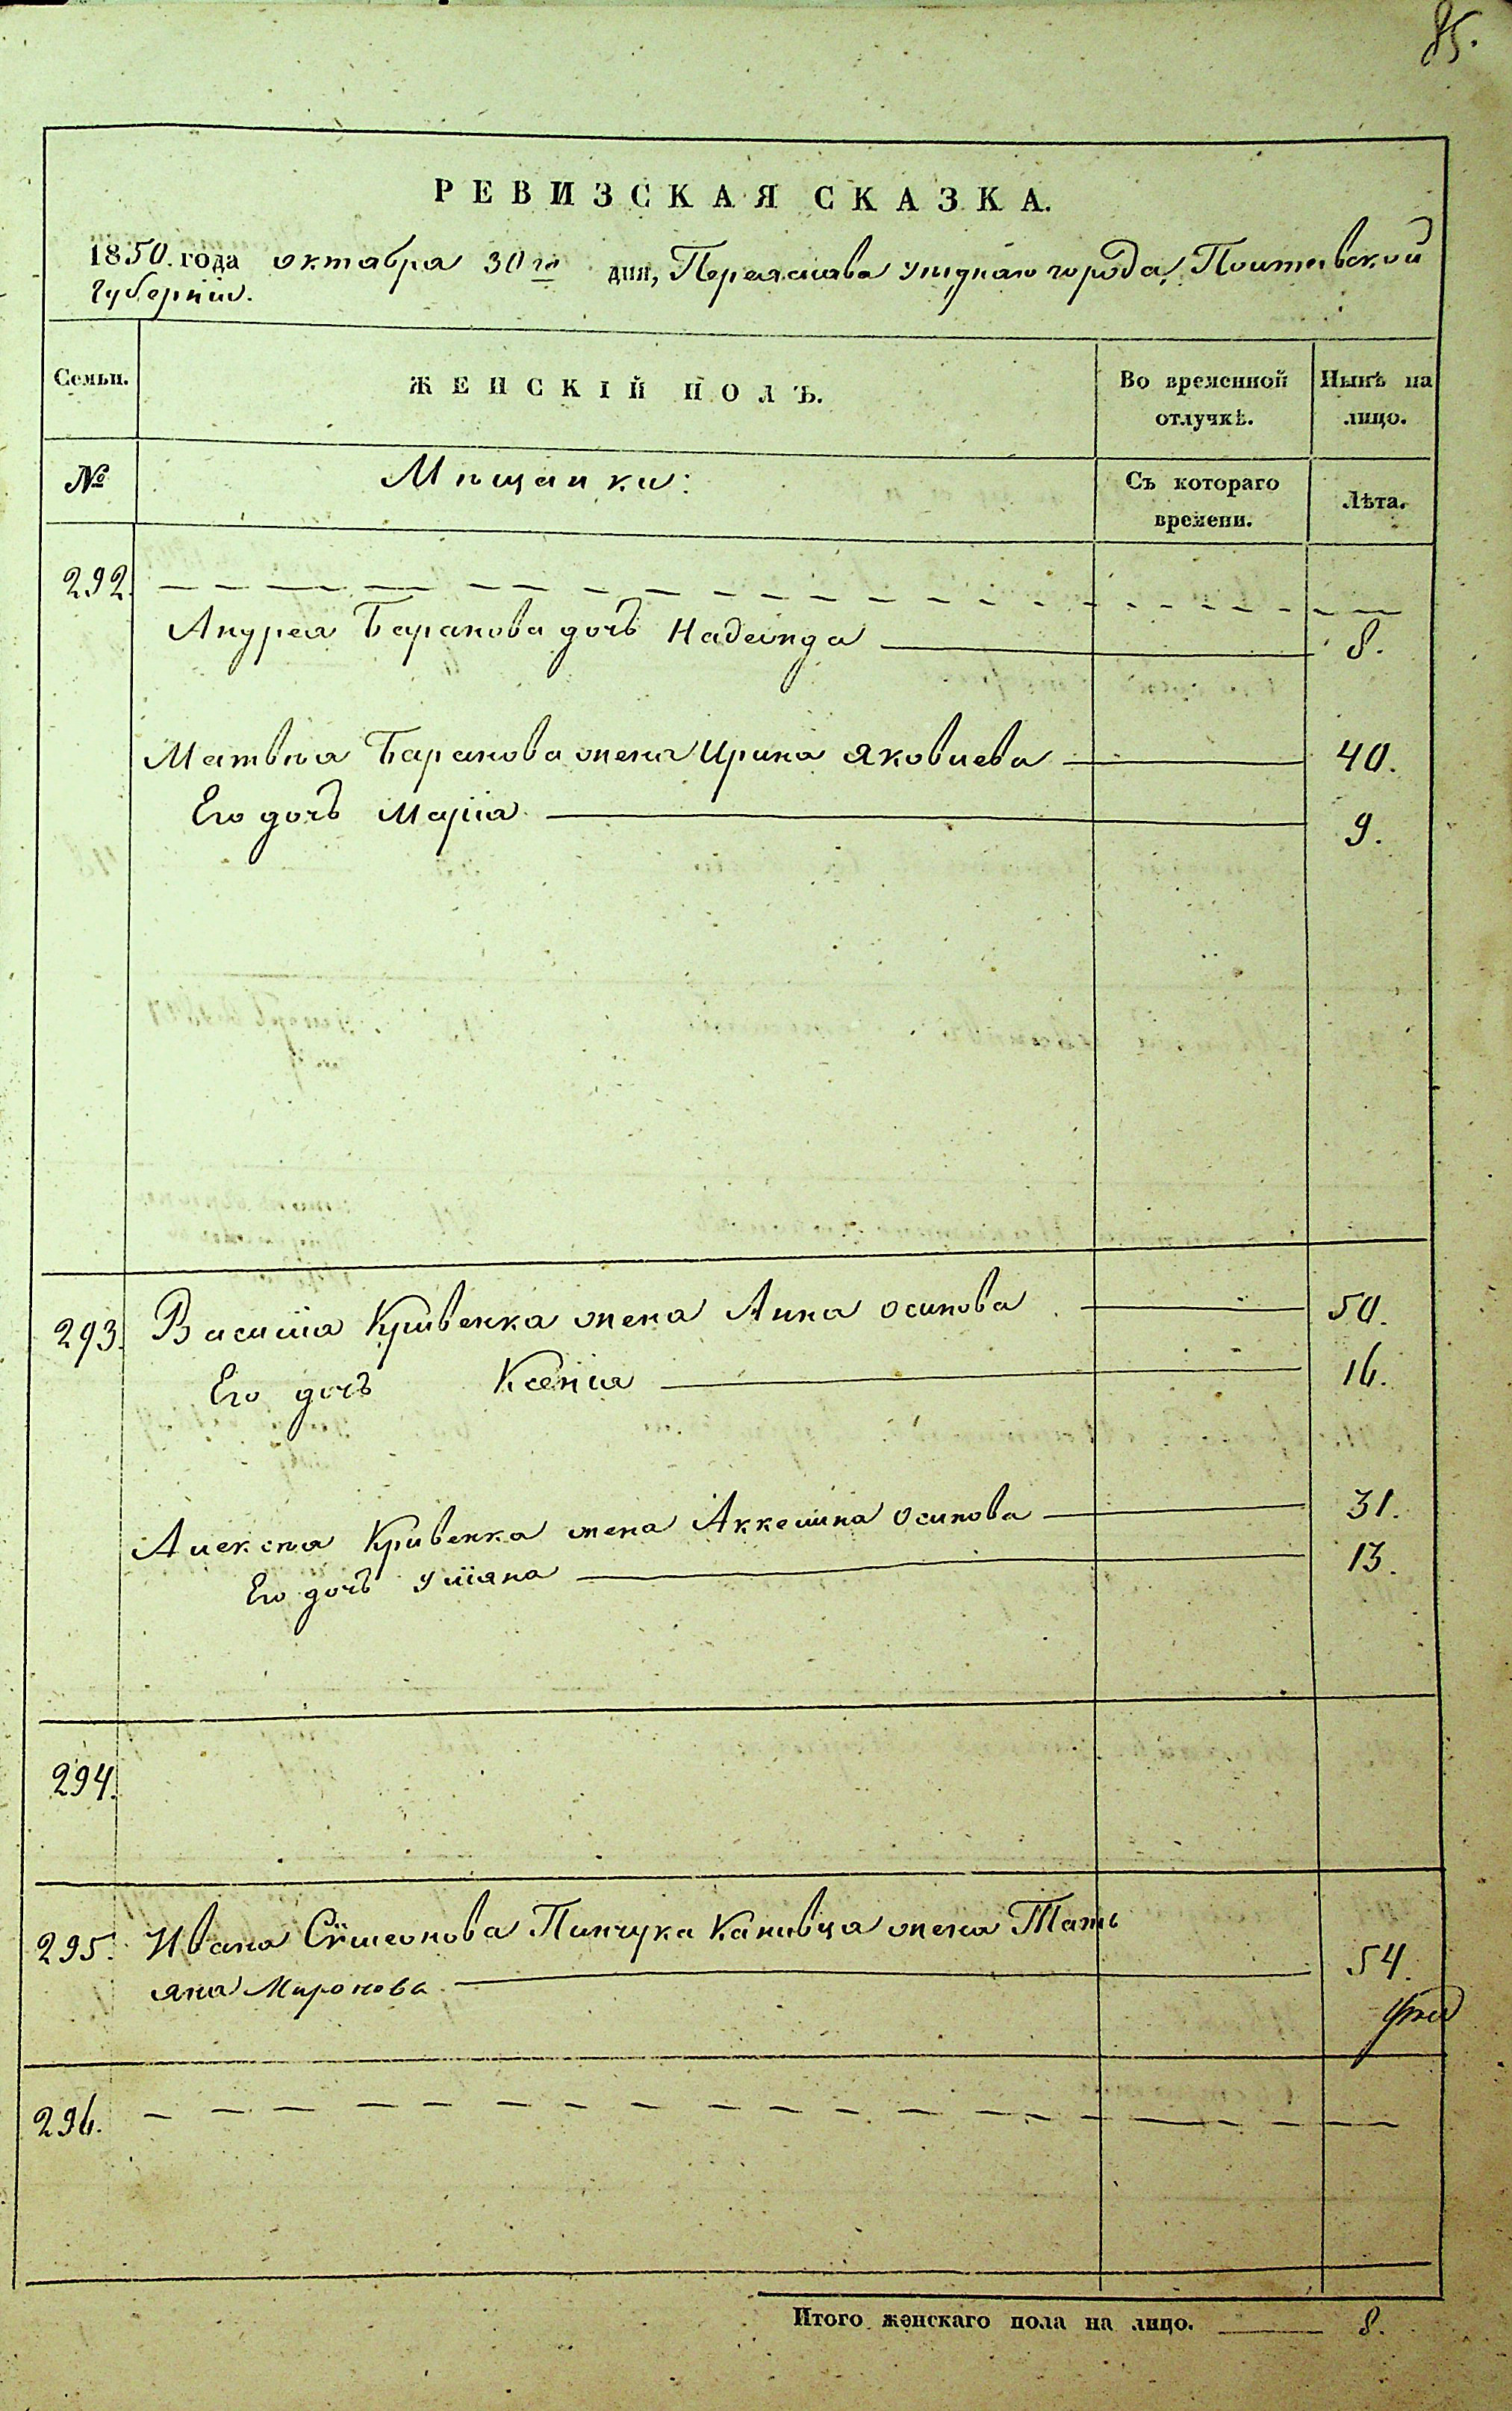 85.
РЕВИЗСКАЯ СКАЗКА.
1850. года октября 30го дня, Переяслава уѣзднаго города, Полтавской
Губерніи.
Семьи. ЖЕНСКІЙ ПОЛЪ. Во временной отлучкѣ. Нынѣ на лицо.
№ Мѣщанки: Съ котораго времени. Лѣта.
292.
Андрея Баранова дочь Надежда 8.
Матвѣя Баранова жена Ирина Яковлева 40.
Его дочь Марія 9.
293. Василія Кривенка жена Анна Осипова 50.
Его дочь Ксенія 16.
Алексѣя Кривенка жена Акке­лина Осипова 31.
Его дочь Уліяна 13.
294.
295. Ивана Симеонова Пинчука Канивца жена Тать
яна Миронова 54.
296.
Итого женскаго пола на лицо. 8.